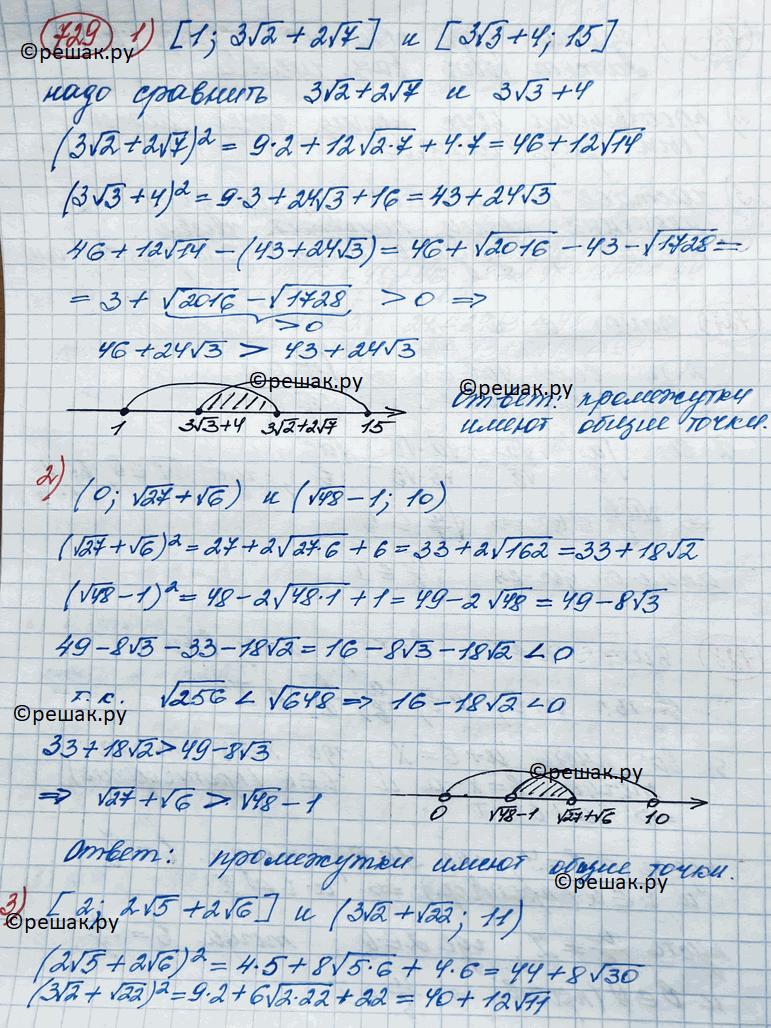 729 1) [1; 3√2 + 2√7] и [3√3 + 4; 15]
©решак.ру
надо сравнить 3√2 + 2√7 и 3√3 + 4
©решак.ру
(3√2 + 2√7)² = 9·2 + 12√2·7 + 4·7 = 46 + 12√14
(3√3 + 4)² = 9·3 + 24√3 + 16 = 43 + 24√3
46 + 12√14 − (43 + 24√3) = 46 + √2016 − 43 − √1728 =
= 3 + √2016 − √1728 > 0 ⇒
> 0
46 + 24√3 > 43 + 24√3
©решак.ру
1 3√3+4 3√2+2√7 15
©решак.ру
Ответ: промежутки
имеют общие точки.
2) (0; √27 + √6) и (√48 − 1; 10)
(√27 + √6)² = 27 + 2√27·6 + 6 = 33 + 2√162 = 33 + 18√2
(√48 − 1)² = 48 − 2√48·1 + 1 = 49 − 2√48 = 49 − 8√3
49 − 8√3 − 33 − 18√2 = 16 − 8√3 − 18√2 < 0
т.к. √256 < √648 ⇒ 16 − 18√2 < 0
©решак.ру
33 + 18√2 > 49 − 8√3
⇒ √27 + √6 > √48 − 1
©решак.ру
0 √48−1 √27+√6 10
Ответ: промежутки имеют общие точки.
©решак.ру
3) [2; 2√5 + 2√6] и (3√2 + √22; 11)
©решак.ру
(2√5 + 2√6)² = 4·5 + 8√5·6 + 4·6 = 44 + 8√30
(3√2 + √22)² = 9·2 + 6√2·22 + 22 = 40 + 12√11
©решак.ру